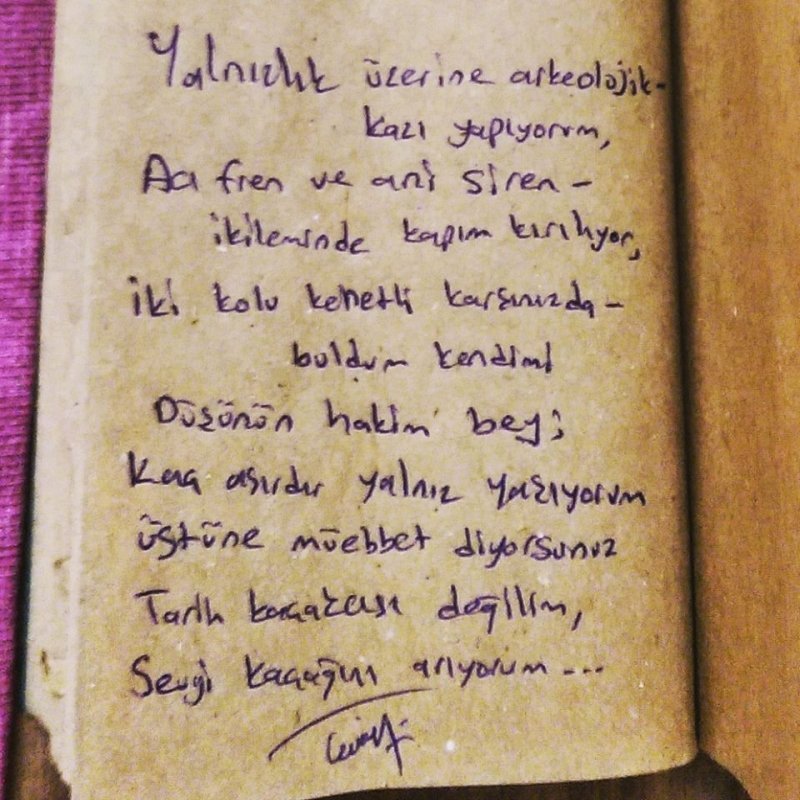 Yalnızlık üzerine arkeolojik-
kazı yapıyorum,
Acı fren ve ani siren -
ikileminde kapım kırılıyor,
İki kolu kenetli karşınızda -
buldum kendimi
Düşünün hakim bey;
Kaç asırdır yalnız yaşıyorum
üstüne müebbet diyorsunuz
Tarih kaçakçısı değilim,
Sevgi kaçağını arıyorum...